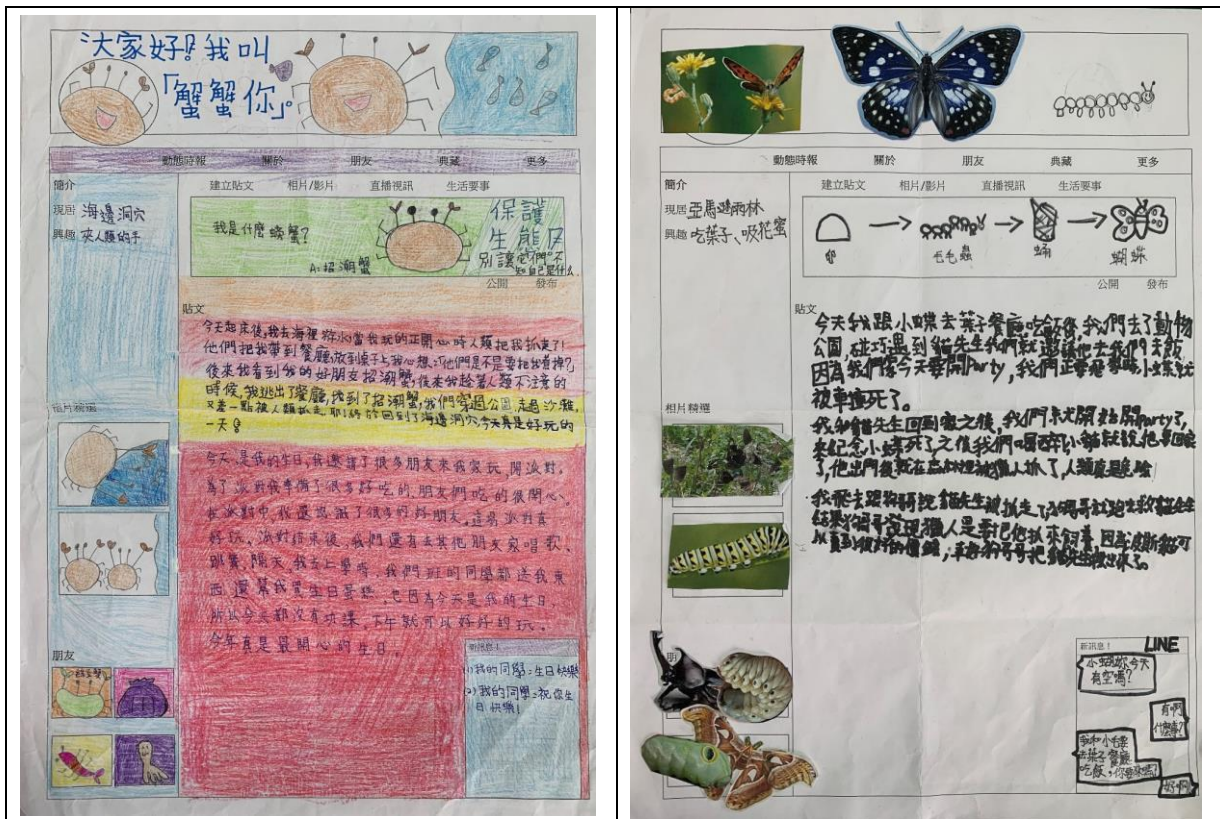 大家好!我叫
「蟹蟹你」。
動態時報 關於 朋友 典藏 更多
簡介
現居 海邊洞穴
興趣 夾人類的手
建立貼文 相片/影片 直播視訊 生活要事
我是什麼螃蟹?
A:招潮蟹
保護
生態區
別讓它們不
知自己是什么
公開 發布
貼文
今天起床後,我去海裡游泳,當我玩的正開心時人類把我抓走了!
他們把我帶到餐廳,放到桌子上我心想:他們是不是要把我煮掉?
後來我看到我的好朋友招潮蟹,後來我趁著人類不注意的
時候,我逃出了餐廳,找到了招潮蟹,我們穿過公園,走過沙灘,
又差一點被人類抓走,耶!終於回到了海邊洞穴,今天真是好玩的
一天!
今天是我的生日,我邀請了很多朋友來我家玩,開派對,
為了派對我準備了很多好吃的,朋友們吃的很開心、
在派對中,我還認識了很多的好朋友,這場派對真
好玩。派對結束後,我們還有去其他朋友家唱歌、
跳舞,隔天,我去上學時,我們班的同學都送我東
西,還幫我實生日夢想,老因為今天是我的生日
所以今天都沒有功課,下午就可以好好的玩。
今年真是最開心的生日。
相片精選
朋友
新訊息!
(1)我的同學:生日快樂
(2)我的同學:祝你生
日快樂!
動態時報 關於 朋友 典藏 更多
簡介
現居 亞馬遜雨林
興趣 吃葉子、吸花蜜
建立貼文 相片/影片 直播視訊 生活要事
卵 毛毛蟲 蛹 蝴蝶
公開 發布
貼文
今天我跟小蝶去葉子餐廳吃飯後,我們去了動物
公園,碰巧遇到貓先生我們就邀請他去我們去飯
因為我們家今天要開Party,我們正要過馬路小蝶就
被車撞死了。
我和貓先生回到家之後,我們就開始開Party了,
來紀念小蝶死了之後我們喝醉,小貓就說他要回家
了,他出門後就在森林裡被獵人抓了,人類真是危險
我飛去跟狗哥說貓先生被抓走了,狗哥就跑去救貓先生
結果狗哥發現獵人是要把他抓來飼養,因為波斯貓可
以賣到很好的價錢,幸好狗哥哥把貓先生救出來了。
相片精選
新訊息! LINE
小蝴妳今天
有空嗎?
有啊
什麼事?
我和小毛要
去葉子餐廳
吃飯,你要來嗎?
好啊